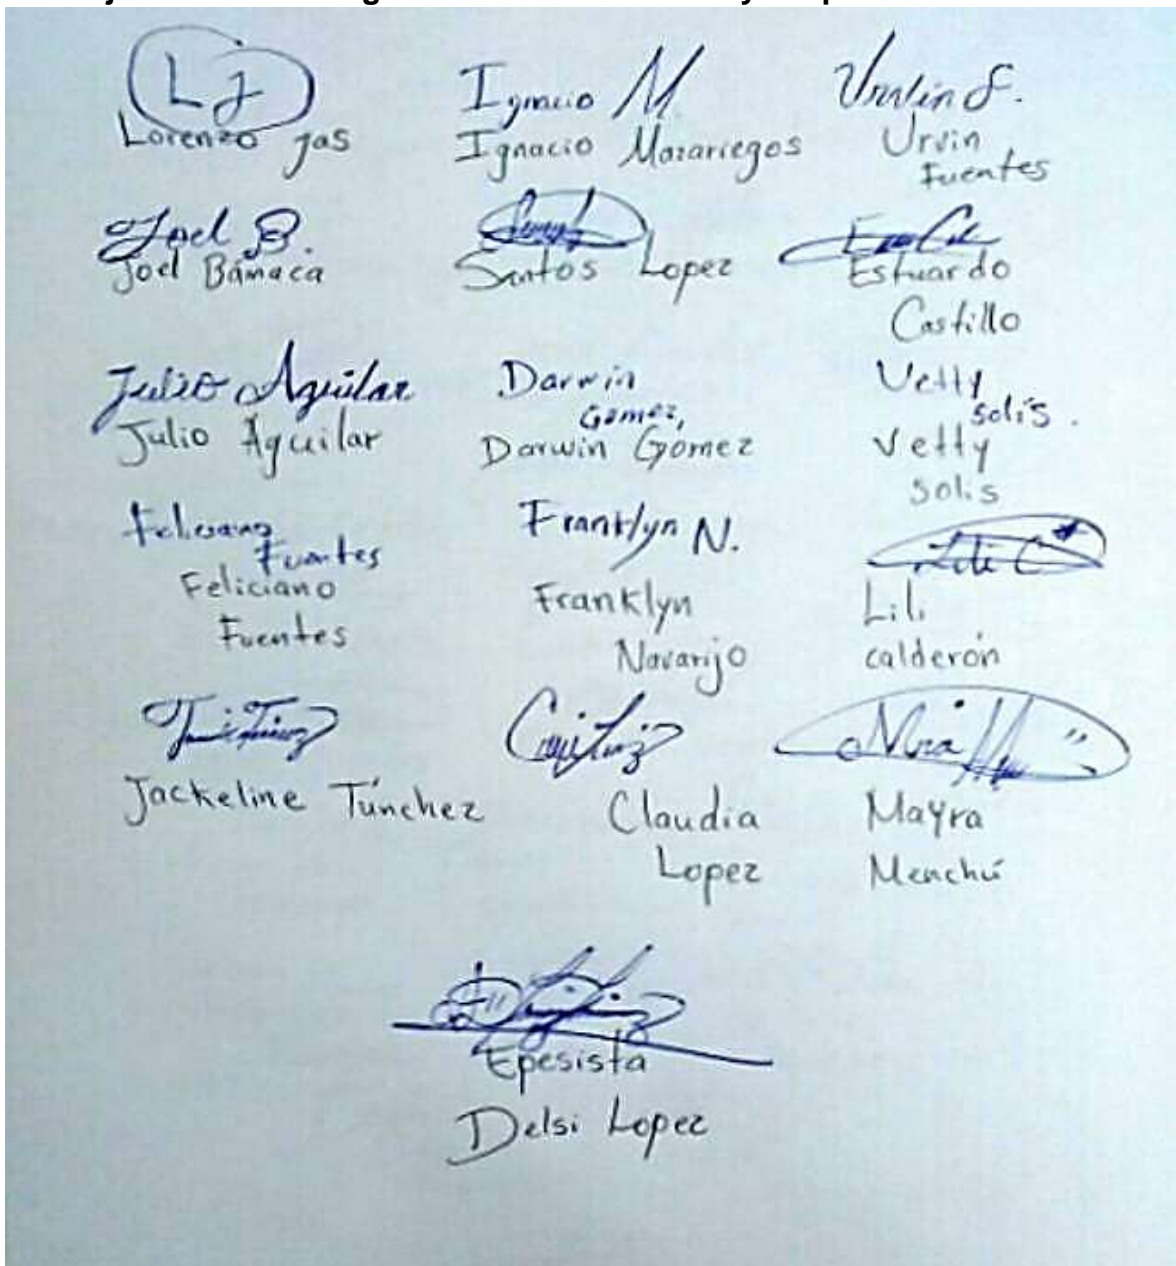 L J
Lorenzo jas
Ignacio M.
Ignacio Mazariegos
Urvin F.
Urvin
Fuentes
Joel B.
Joel Bámaca
Santos Lopez
Estuardo
Castillo
Julio Aguilar
Julio Aguilar
Darwin
Gomez,
Darwin Gomez
Vetty
Solis.
Vetty
Solis
Feliciano
Fuentes
Feliciano
Fuentes
Franklyn N.
Franklyn
Navarijo
Lili C
Lili
calderón
Jackeline Túnchez
Claudia
Lopez
Mayra
Menchú
Epesista
Delsi Lopez